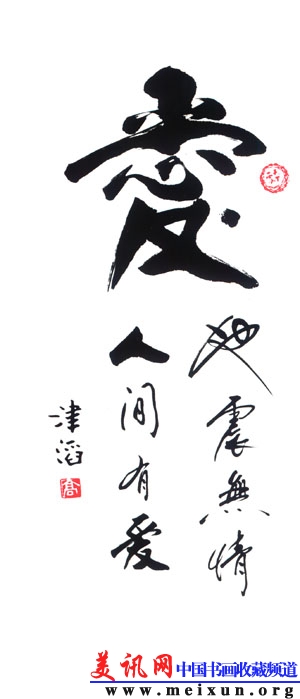 愛
地震無情
人间有爱
津滔
美讯网 中国书画收藏频道
www.meixun.org